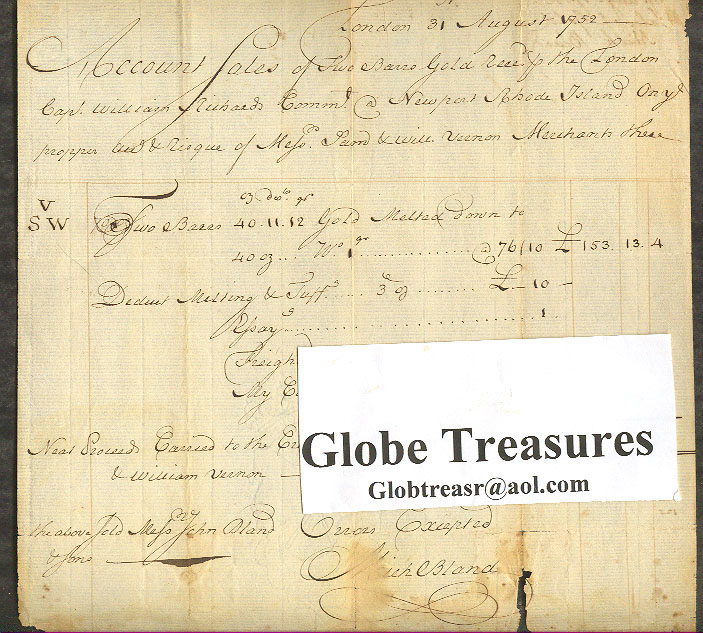 London 31 August 1752
Account Sales of Two Barrs Gold Recd p the London
Capt. William Richards Commr. @ Newport Rhode Island On ye
propper acct & risque of Messrs. Saml & Will. Vernon Merchants there
V
S W
oz dwts gr
Two Barrs 40.11.12 Gold Melted down to
40 oz ... Wo. 1 gr ........ @ 76/10 £ 153. 13. 4
Deduct Melting & .... 3d oz ........ £ - 10 -
Assays ........ 1
Freigh
My C
Neat Proceed Carried to the
& William Vernon
the above sold Messrs John Bland Errors Excepted
& Sons
Mich Bland
Globe Treasures
Globtreasr@aol.com